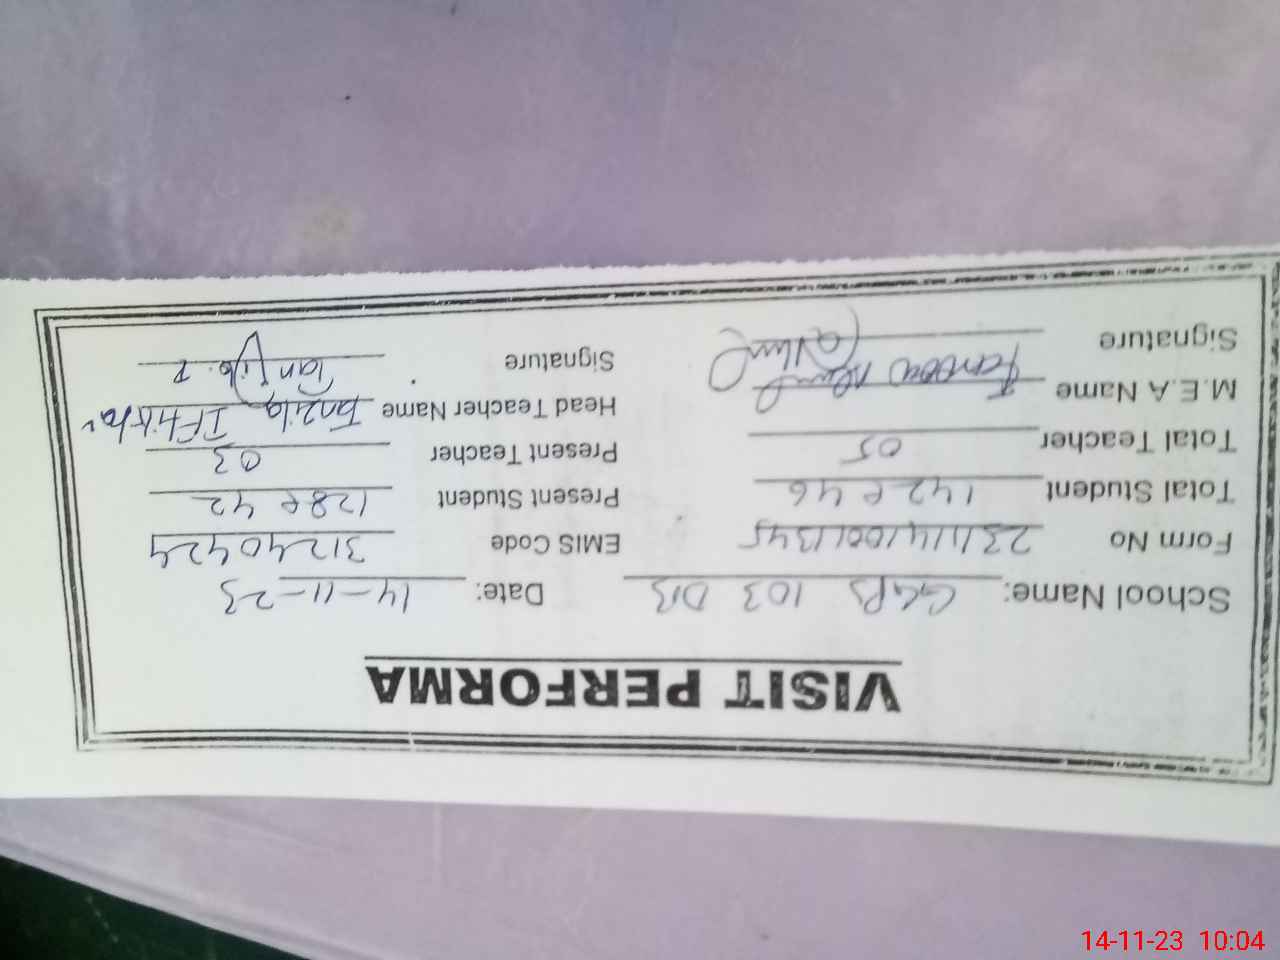 VISIT PERFORMA
School Name: GGPS 103 DB Date: 14-11-23
Form No 2311141001345 EMIS Code 31240424
Total Student 142 e 46 Present Student 128 e 42
Total Teacher 05 Present Teacher 03
M.E.A Name Head Teacher Name Tanzila Iftikhar
Signature Signature
14-11-23 10:04